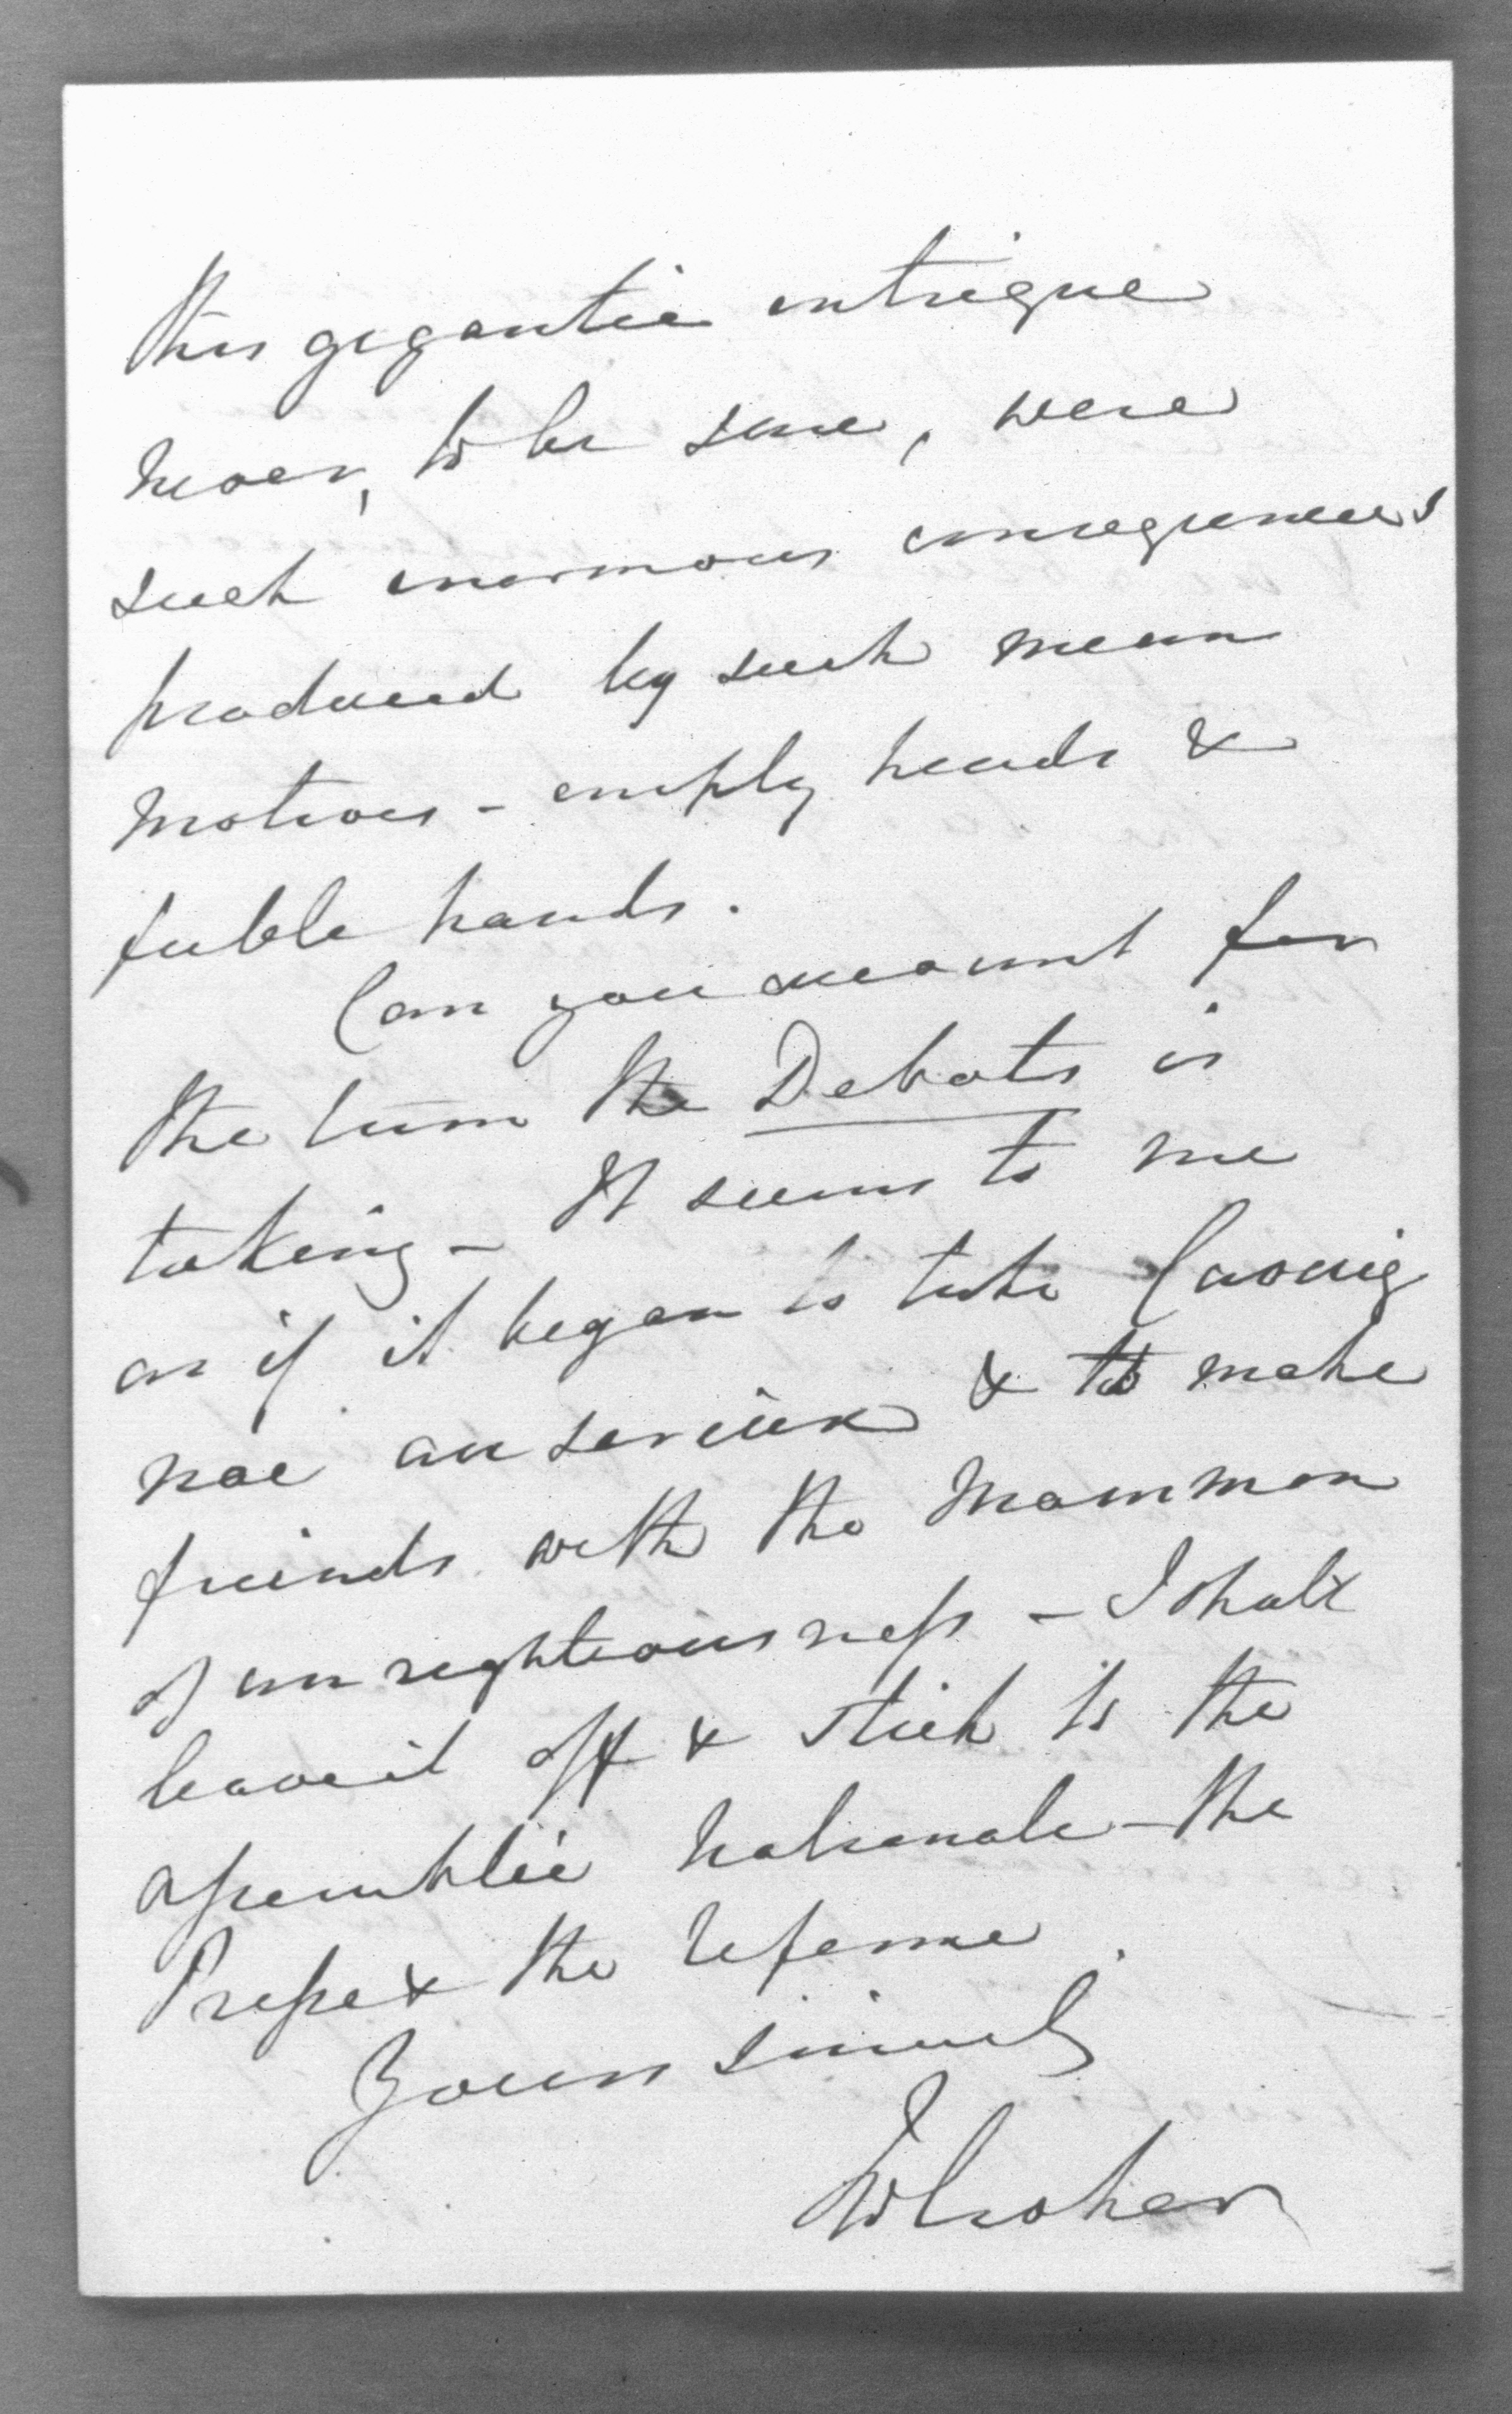 this gigantic intrigue
never, to be sure, were
such enormous consequences
produced by such mean
motives - empty heads &
feeble hands.
Can you account for
the turn the Debats is
taking - It seems to me
as if it began to take
& to make
friends with the Mammon
of unrighteousness - I shall
leave it off & stick to the
assemblée nationale - the
Presse & the reforme.
Yours sincerely
JWCroker